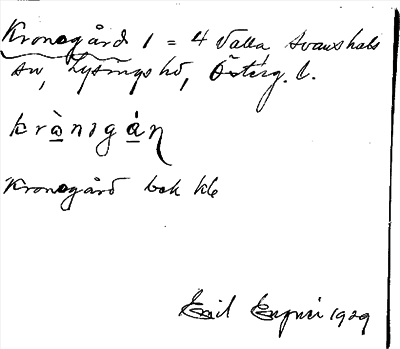 Kronogård 1 = 4 Valla Svanshals
sn, Lysings hd, Österg. l.
krànɪgáɳ
Kronogård bok kk
Emil 1929